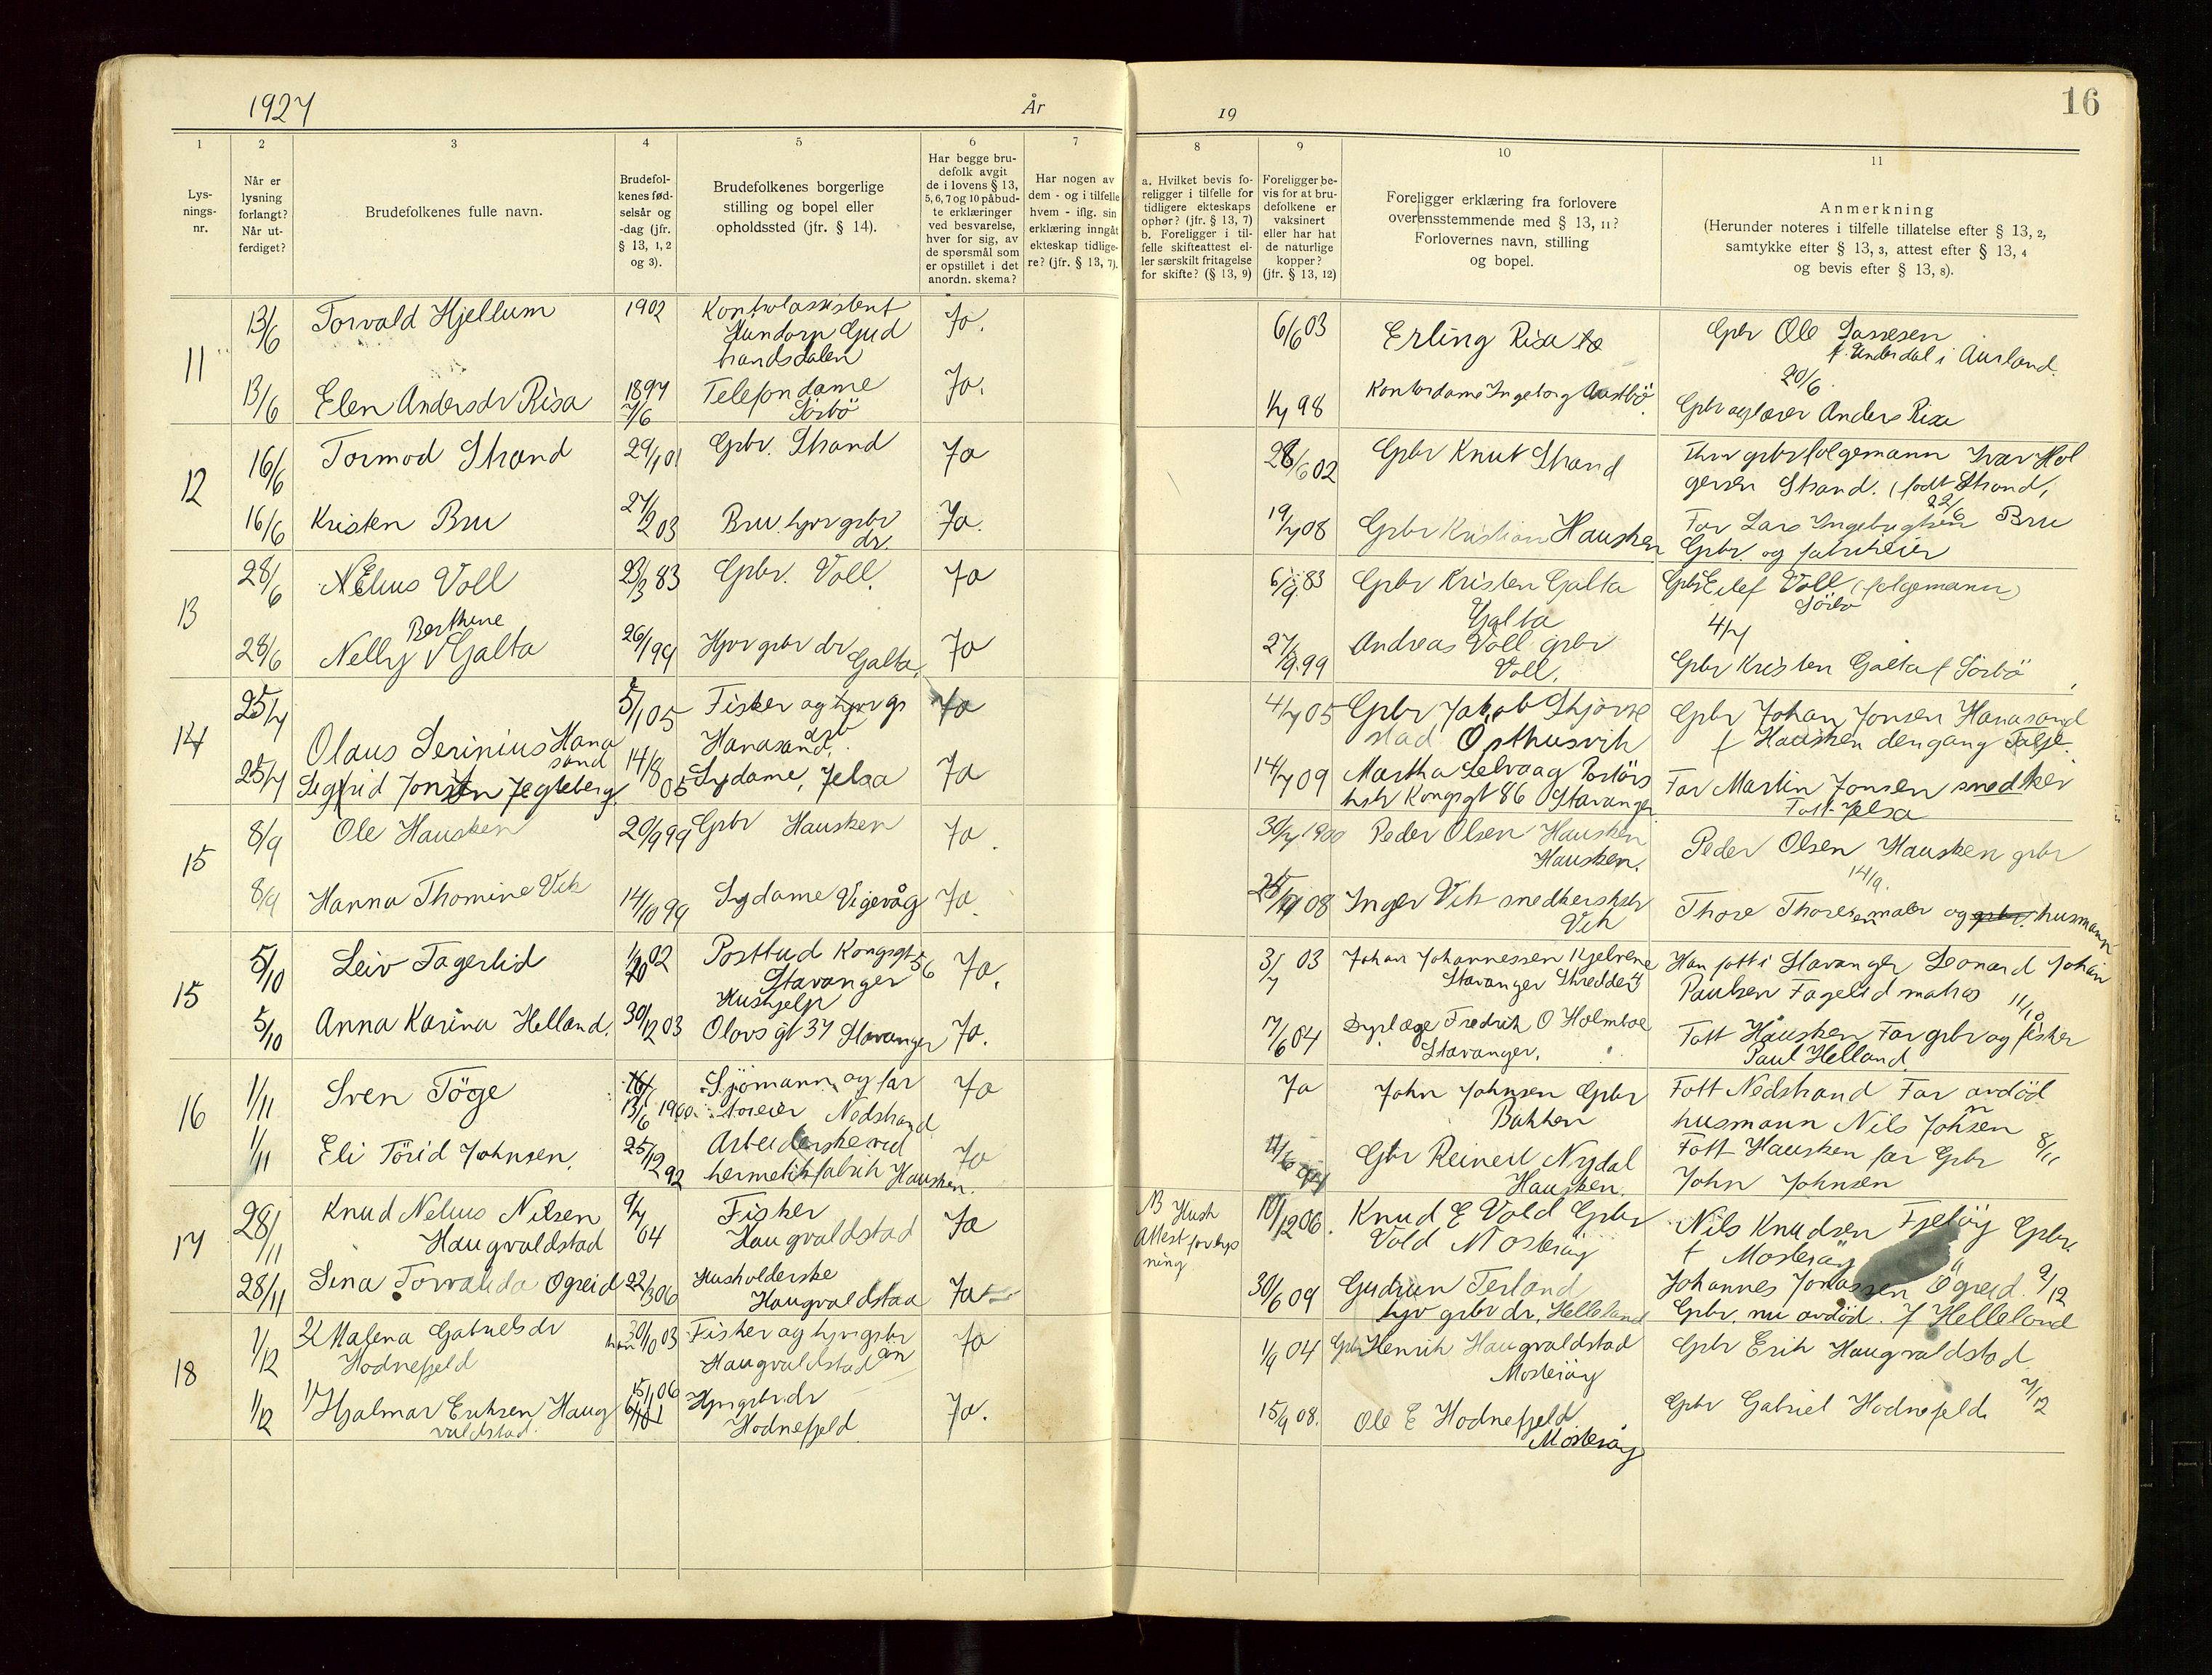 1927
År
19
16
1
2
3
4
5
6
7
8
9
10
11
Lys-
nings-
nr.
Når er
lysning
forlangt?
Når ut-
ferdiget?
Brudefolkenes fulle navn.
Brudefol-
kenes fød-
selsår og
-dag (jfr.
§ 13, 1, 2
og 3).
Brudefolkenes borgerlige
stilling og bopel eller
opholdssted (jfr. § 14).
Har begge bru-
defolk avgit
de i lovens § 13,
5, 6, 7 og 10 påbud-
te erklæringer
ved besvarelse,
hver for sig, av
de spørsmål som
er opstillet i det
anordn. skema?
Har nogen av
dem - og i tilfelle
hvem - iflg. sin
erklæring inngåt
ekteskap tidlige-
re? (jfr. § 13, 7).
a. Hvilket bevis fo-
religger i tilfelle for
tidligere ekteskaps
ophør? (jfr. § 13, 7)
b. Foreligger i til-
felle skifteattest el-
ler særskilt fritagelse
for skifte? (§ 13, 9)
Foreligger be-
vis for at bru-
defolkene er
vaksinert
eller har hat
de naturlige
kopper?
(jfr. § 13, 12)
Foreligger erklæring fra forlovere
overensstemmende med § 13, 11?
Forlovernes navn, stilling
og bopel.
Anmerkning
(Herunder noteres i tilfelle tillatelse efter § 13, 2,
samtykke efter § 13, 3, attest efter § 13, 4
og bevis efter § 13, 8).
11
13/6 Torvald Hjellum 1902 Kontrolassistent Ja. 6/6 03 Erling Risa Gbr Ole Lassesen
Hundorp Gud
brandsdalen
f. Underdal i Aurland.
20/6
13/6 Elen Andersdr Risa 1897 7/6 Telefondame Ja. 98 Kontordame Ingeborg Aastbö. Gbr og lærer Anders Risa
Sörbö
12
16/6 Tormod Strand 29/1 01 Gbr. Strand Ja 28/6 02 Gbr Knut Strand Thv gbr følgemann Ivar Hol
gersen Strand. (født Strand,
22/6
16/6 Kristen Bru 27/2 03 Bru hjv gbr dr. Ja. 19/7 08 Gbr Kristian Hausken Far Lars Ingebrigtsen Bru
Gbr. og fabrikeier
13
28/6 Nelius Voll 23/3 83 Gbr. Voll. Ja 6/9 83 Gbr Kristen Galta Gbr Eilef Voll (følgemann)
Galta
Sörbö
4/7
28/6 Nelly Berthine Galta 26/1 99 Hjv gbr dr Galta. Ja 27/9 99 Andreas Voll gbr Gbr Kristen Galta f Sörbö
Voll.
14
25/7 Olaus Serinius Hana
sand 5/1 05 Fisker og hjv gr Ja 4/7 05 Gbr Jakob Skjörve
stad Östhusvik Gbr Johan Jonsen Hanasand
Hanasand.
f Hausken dengang Talje.
25/7 Sigfrid Jonsen Jegleberg 14/8 05 Sydame, Jelsa Ja 14/7 09 Martha Selvaag
Kongsgt 86 Stavanger Far Martin Jonsen snedker
Fött Jelsa
15
8/9 Ole Hausken 20/9 99 Gbr Hausken Ja. 30/7 1900 Peder Olsen Hausken
Hausken. Peder Olsen Hausken gbr
14/9.
8/9 Hanna Thomine Vik 14/10 99 Sydame Vigevåg Ja. 08 Inger Vik snedkersktr
Vik Thore Thoresen maler og gbr. husmann
15
5/10 Leiv Fagerlid 02 Postbud Kongsgt 56
Stavanger Ja. 3/7 03 Johan Johannessen Kjelvene
Stavanger Skredder Han fött i Stavanger Leonard Johan
Paulsen Fagelid matros 11/10
5/10 Anna Karina Helland. 30/12 03 Hushjelp
Olavs gt 37 Stavanger Ja. 17/6 04 Dyrlæge Fredrik O Holmboe
Stavanger. Fött Hausken Far gbr og fisker
Paul Helland.
16
1/11 Sven Töge 13/6 1900 Sjömann og far
töieier Nedstrand Ja Ja John Johnsen Gbr
Bakken Fött Nedstrand Far avdöd
husmann Nils Johnsen
1/11 Eli Törid Johnsen. 25/12 92 Arbeiderske ved
hermetikfabrik Hausken. Ja Gbr Reinert Nydal
Hausken. Fött Hausken far Gbr 8/11
John Johnsen
17
28/11 Knud Nelius Nilsen
Haugvaldstad 9/7 04 Fisker
Haugvaldstad Ja NB Husk
Attest for lys
ning 10/12 06. Knud E Vold Gbr
Vold Mosteröy Nils Knudsen Fjelöy Gbr.
f Mosteröy
28/11 Sina Torvalida Ogreid 22/3 06 Husholderske
Haugvaldstad Ja 30/6 09 Gudrun Terland
hjv gbr dr, Helleland Johannes Jonassen Ögreid. 9/12
Gbr. nu avdöd. f Helleland
18
1/12 2/ Malena Gabrielsdr
Hodnefjeld 30/10 03 Fisker og hjv gbr
Haugvaldstad Ja 1/9 04 Gbr Henrik Haugvaldstad
Mosteröy Gbr Erik Haugvaldstad
7/12
1/12 1/ Hjalmar Eriksen Haug
valdstad. 15/1 06 Hjv gbr dr
Hodnefjeld Ja. 15/9 08. Ole E Hodnefjeld
Mosteröy Gbr Gabriel Hodnefjeld.